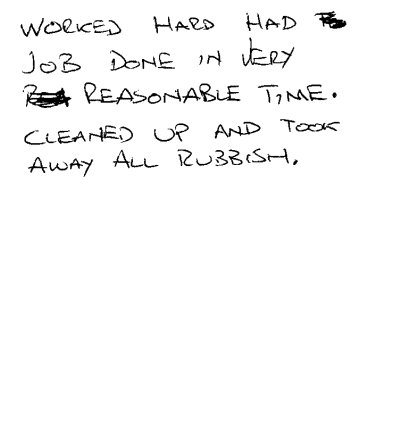 WORKED HARD HAD
JOB DONE IN VERY
REASONABLE TIME.
CLEANED UP AND TOOK
AWAY ALL RUBBISH.